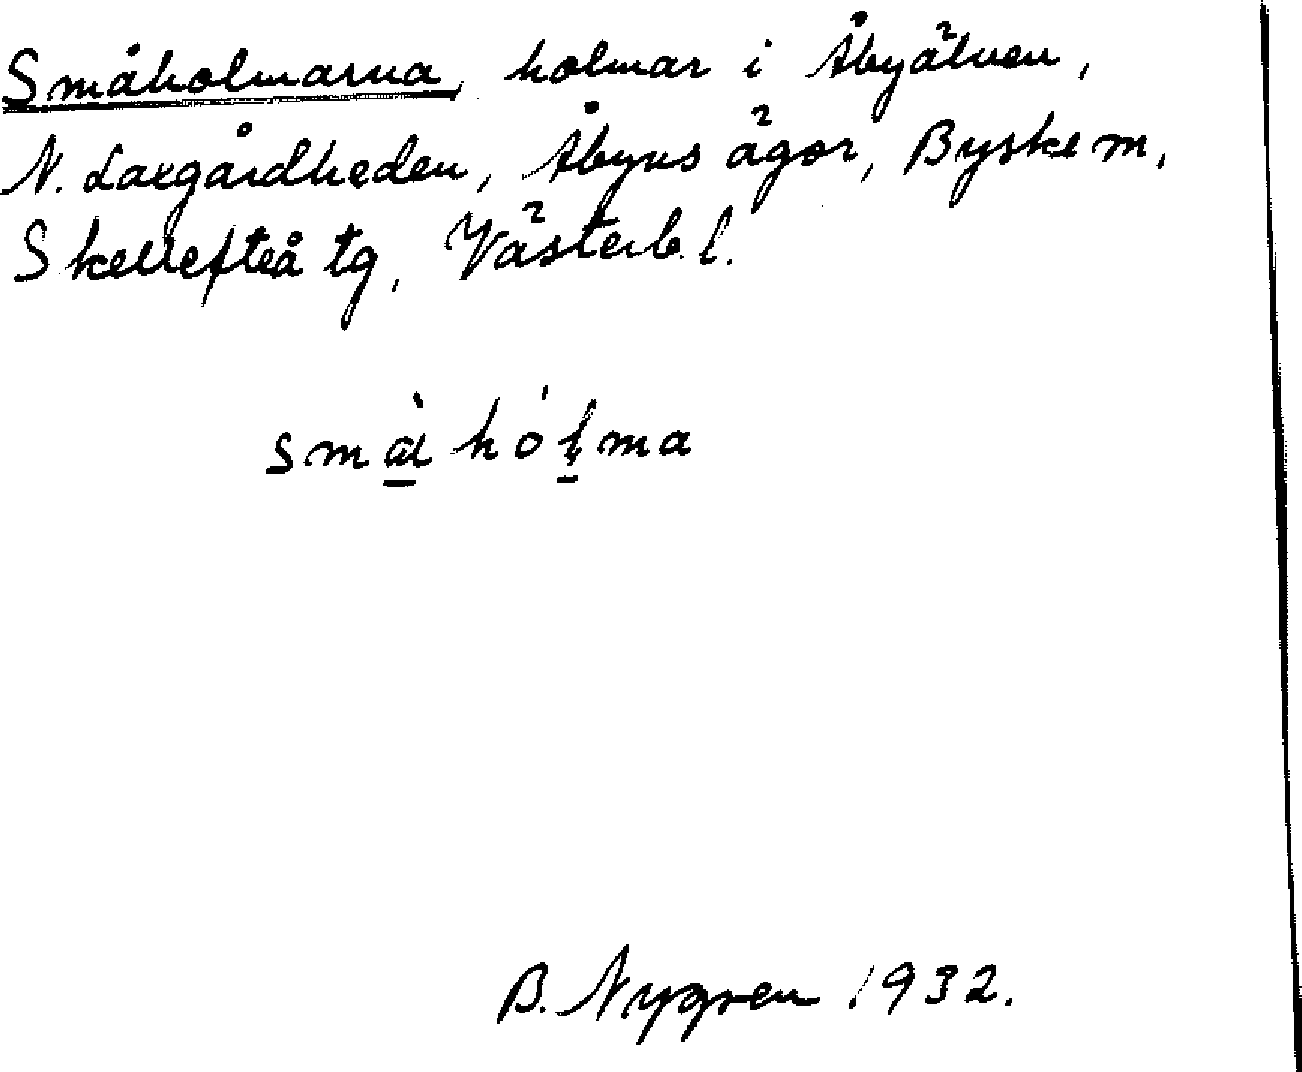 Småholmarna, holmar i Åbyälven,
N. Laxgårdheden, Åbyns ägor, Byske sn,
Skellefteå tg, Västerb. l.
småhóļma
B. Nygren 1932.